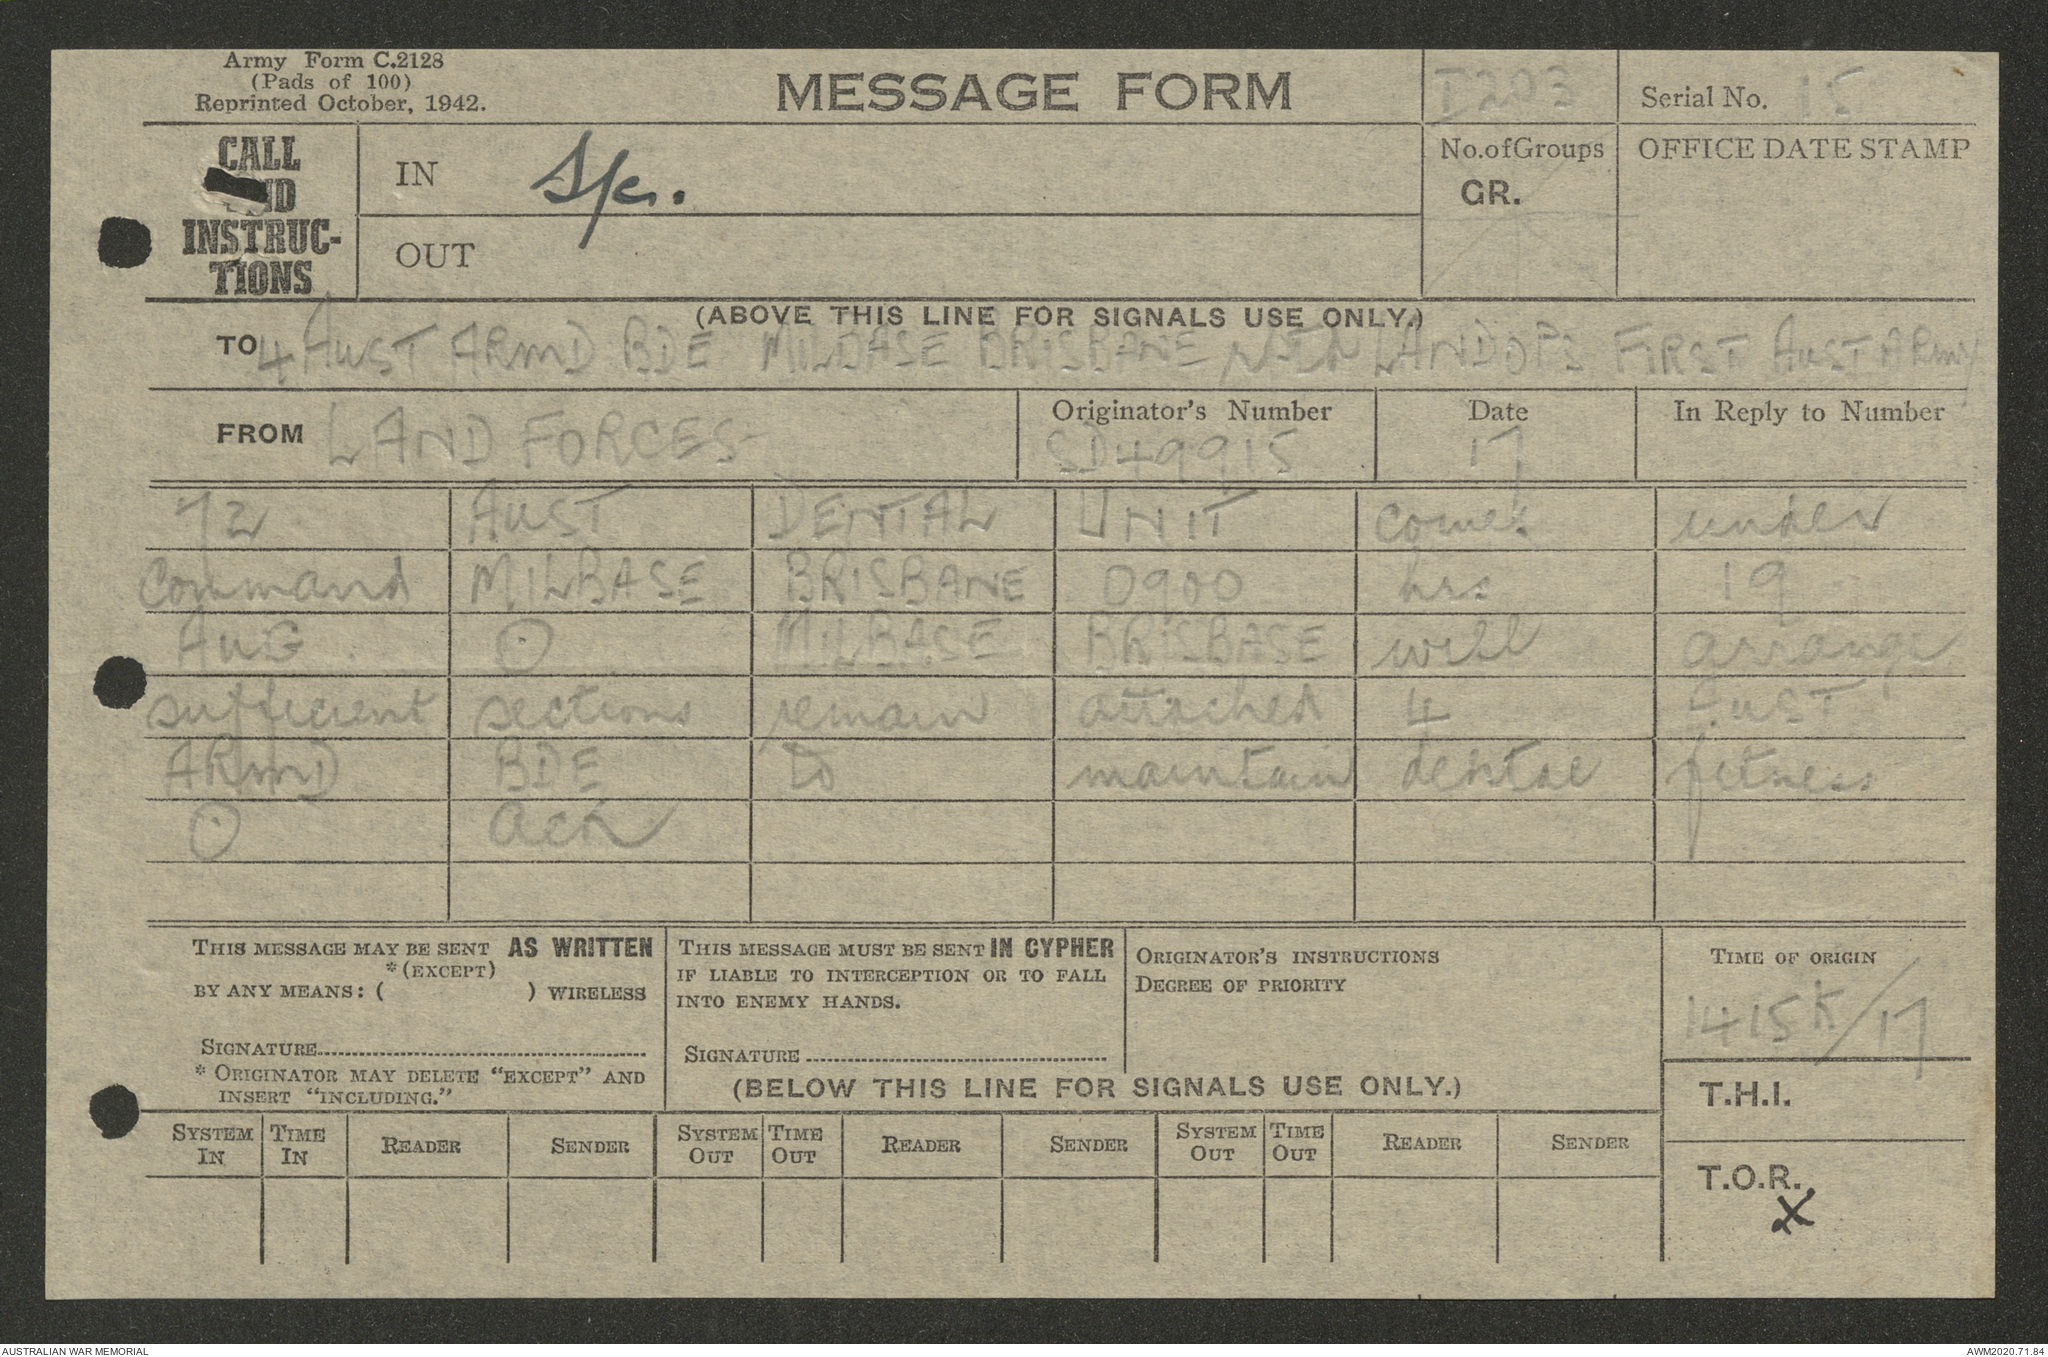 Army Form C.2128
(Pads of 100)
Reprinted October, 1942.
MESSAGE FORM
I203
Serial No. 15
CALL
AND
INSTRUC-
TIONS
IN
OUT
No.ofGroups
GR.
OFFICE DATE STAMP
(ABOVE THIS LINE FOR SIGNALS USE ONLY.)
TO 4 AUST ARMD BDE MILBASE BRISBANE LANDOPS FIRST AUST ARMY
FROM LAND FORCES
Originator's Number
SD49915
Date
17
In Reply to Number
72 AUST DENTAL UNIT comes under
Command MILBASE BRISBANE 0900 hrs 19
AUG ⊙ MILBASE BRISBASE will arrange
sufficient sections remain attached 4 AUST
ARMD BDE to maintain dental fitness
⊙ ack
THIS MESSAGE MAY BE SENT AS WRITTEN
*(EXCEPT)
BY ANY MEANS: ( ) WIRELESS
SIGNATURE
* ORIGINATOR MAY DELETE "EXCEPT" AND
INSERT "INCLUDING."
THIS MESSAGE MUST BE SENT IN CYPHER
IF LIABLE TO INTERCEPTION OR TO FALL
INTO ENEMY HANDS.
SIGNATURE
ORIGINATOR'S INSTRUCTIONS
DEGREE OF PRIORITY
TIME OF ORIGIN
1415K/17
(BELOW THIS LINE FOR SIGNALS USE ONLY.)
T.H.I.
T.O.R.
X
SYSTEM IN TIME IN READER SENDER SYSTEM OUT TIME OUT READER SENDER SYSTEM OUT TIME OUT READER SENDER
AUSTRALIAN WAR MEMORIAL
AWM2020.71.84